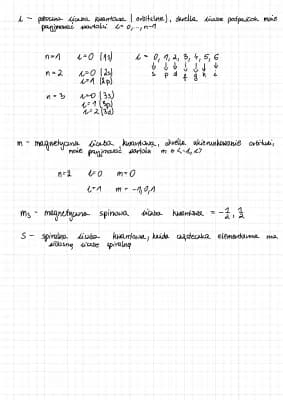 l - poboczna liczba kwantowa (orbitalna), określa liczbę podpowłok może
przyjmować wartości l = 0, ..., n-1
n=1 l=0 (1s)
n=2 l=0 (2s)
l=1 (2p)
n=3 l=0 (3s)
l=1 (3p)
l=2 (3d)
l = 0, 1, 2, 3, 4, 5, 6
s p d f g h i
m - magnetyczna liczba kwantowa, określa ukierunkowanie orbitali,
może przyjmować wartości m ∈ <-l, l>
n=2 l=0 m=0
l=1 m = -1,0,1
ms - magnetyczna spinowa liczba kwantowa = -1/2, 1/2
s - spinalna liczba kwantowa, każda cząsteczka elementarna ma
liczbę spinalną